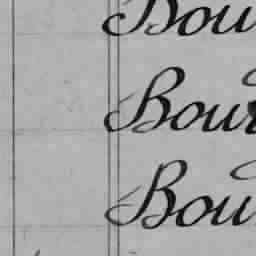 Bou
Bour
Bou